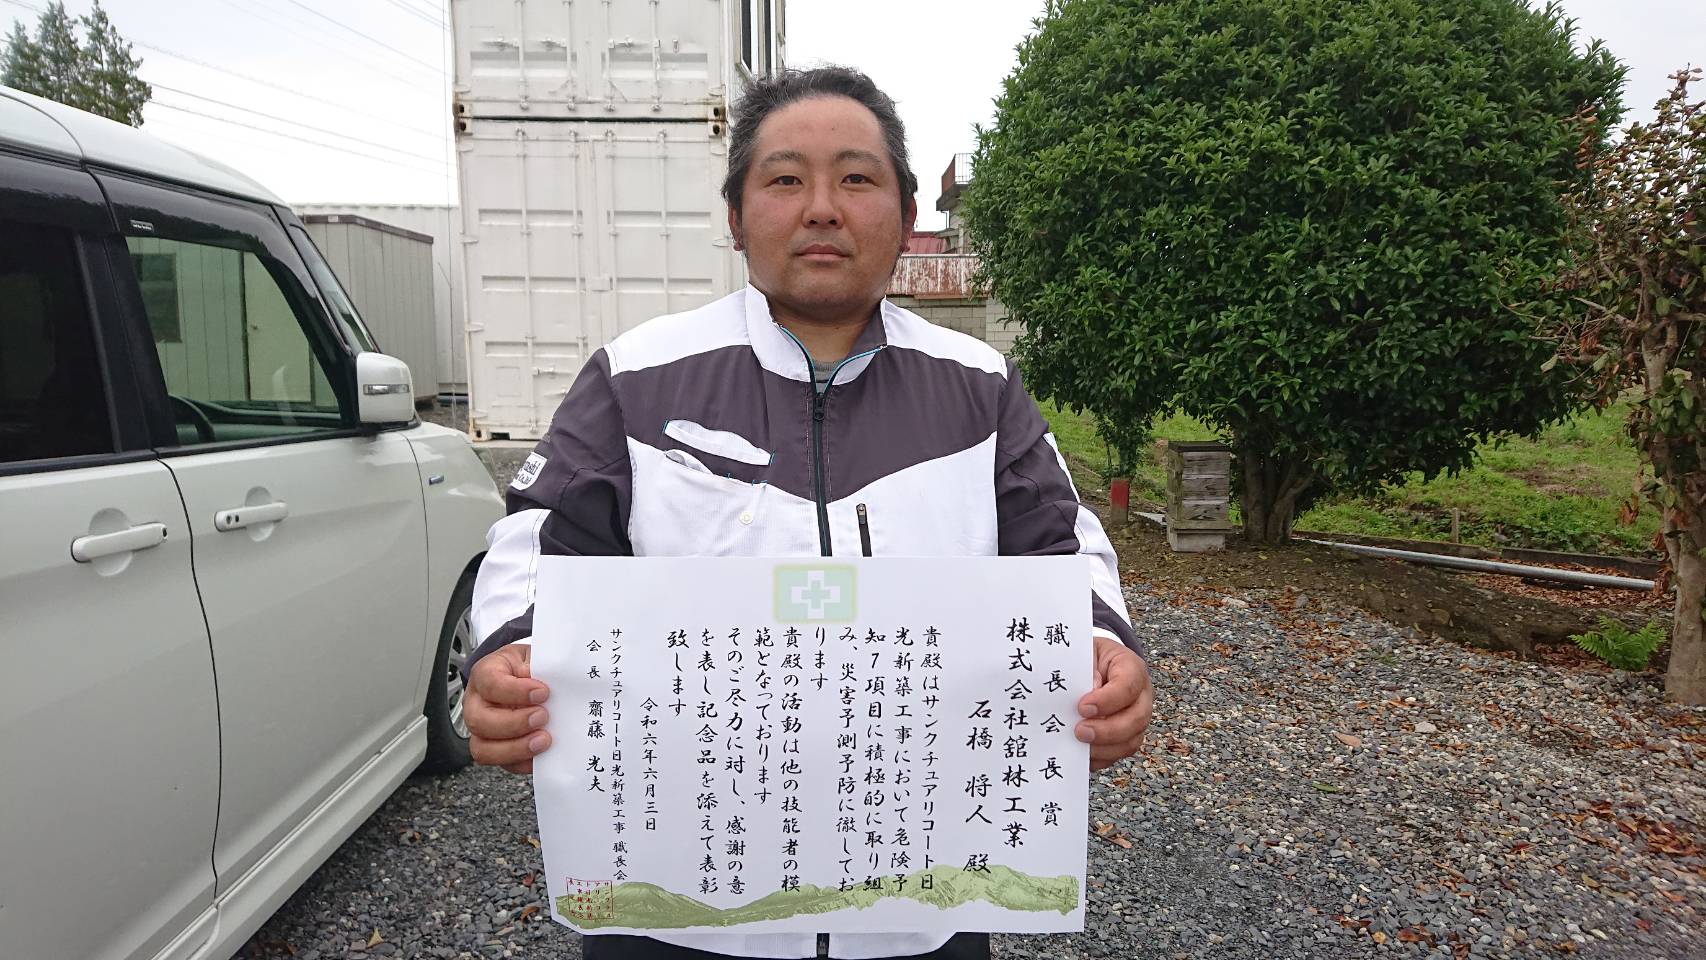 職長会長賞
株式会社舘林工業
石橋 将人 殿
貴殿はサンクチュアリコート日
光新築工事において危険予
知7項目に積極的に取り組
み、災害予測予防に徹してお
ります
貴殿の活動は他の技能者の模
範となっております
そのご尽力に対し、感謝の意
を表し記念品を添えて表彰
致します
令和六年六月三日
サンクチュアリコート日光新築工事 職長会
会長 齋藤 光夫